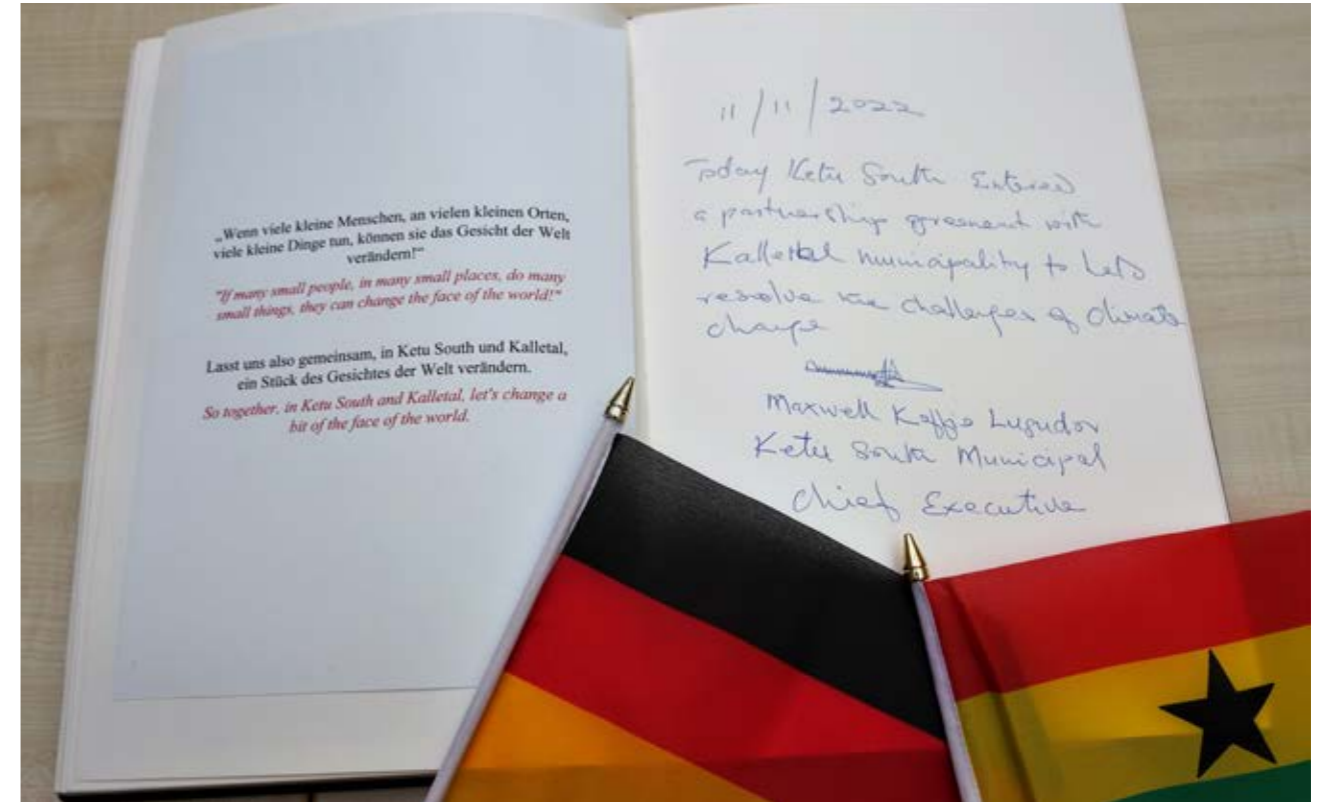 „Wenn viele kleine Menschen, an vielen kleinen Orten,
viele kleine Dinge tun, können sie das Gesicht der Welt
verändern!“
"If many small people, in many small places, do many
small things, they can change the face of the world!"
Lasst uns also gemeinsam, in Ketu South und Kalletal,
ein Stück des Gesichtes der Welt verändern.
So together, in Ketu South and Kalletal, let's change a
bit of the face of the world.
11/11/2022
Today Ketu South Entered
a partnership agreement with
Kalletal municipality to
resolve the challenges of climate
change
Maxwell Lugudor
Ketu South Municipal
Chief Executive